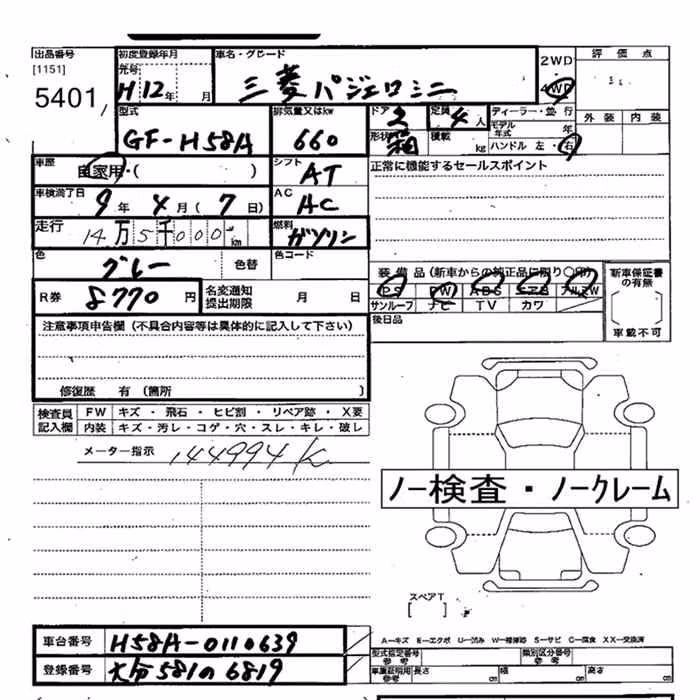 出品番号
[1151]
5401
初度登録年月
元号
H12年 月
車名・グレード
三菱パジェロミニ
2WD
4WD
評価点
外装 内装
型式
GF-H58A
排気量又はkw
660
ドア 2
定員 4人
形状 箱
積載 kg
ディーラー・並行
モデル年式 年
ハンドル 左・右
車歴
自家用・( )
シフト
AT
正常に機能するセールスポイント
車検満了日
9年4月(7日)
AC
AC
走行
14万5千000km
燃料
ガソリン
色
グレー
色替
色コード
装備品(新車からの純正品に限り○印)
PS PW ABS エアB ナルミW
サンルーフ ナビ TV カワ
新車保証書の有無
[ ]
車載不可
R券 8770円
名変通知提出期限 月 日
後日品
注意事項申告欄(不具合内容等は具体的に記入して下さい)
修復歴 有(箇所 )
検査員記入欄
FW キズ・飛石・ヒビ割・リペア跡・X要
内装 キズ・汚レ・コゲ・穴・スレ・キレ・破レ
メーター指示 144994K
ノー検査・ノークレーム
スペアT
[ ]
車台番号 H58A-0110639
登録番号 581の6819
A-キズ E-エクボ U-凹み W-補修跡 S-サビ C-腐食 XX-交換済
型式指定番号 参考
類別区分番号 参考
車庫証明用 参考 長さ cm 幅 cm 高さ cm